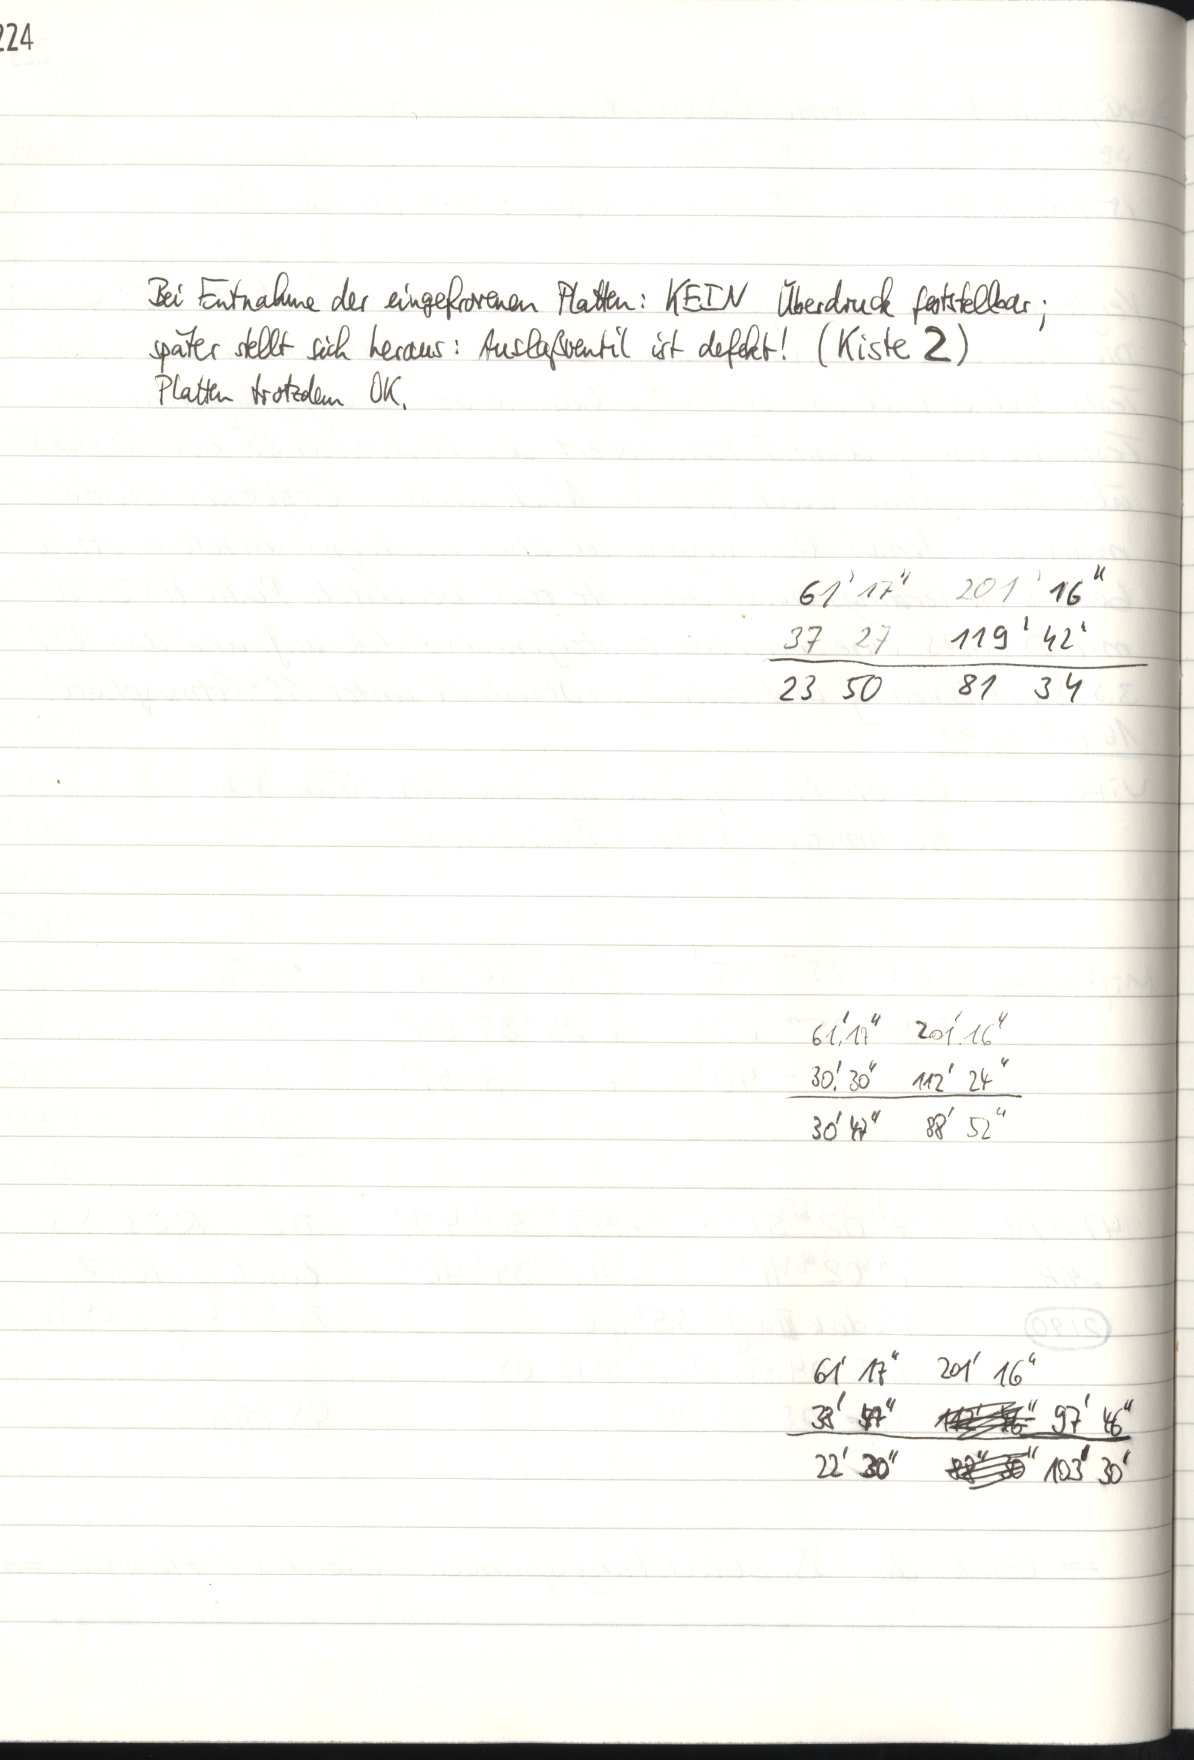 224
Bei Entnahme der eingefrorenen Platten: KEIN Überdruck feststellbar;
später stellt sich heraus: Auslaßventil ist defekt! (Kiste 2)
Platten trotzdem OK.
61' 17" 201' 16"
37 27 119' 42'
23 50 81 34
61' 17" 201' 16"
30' 30" 112' 24"
30' 47" 88' 52"
61' 17" 201' 16"
38' 47" 97' 46"
22' 30" 103' 30'